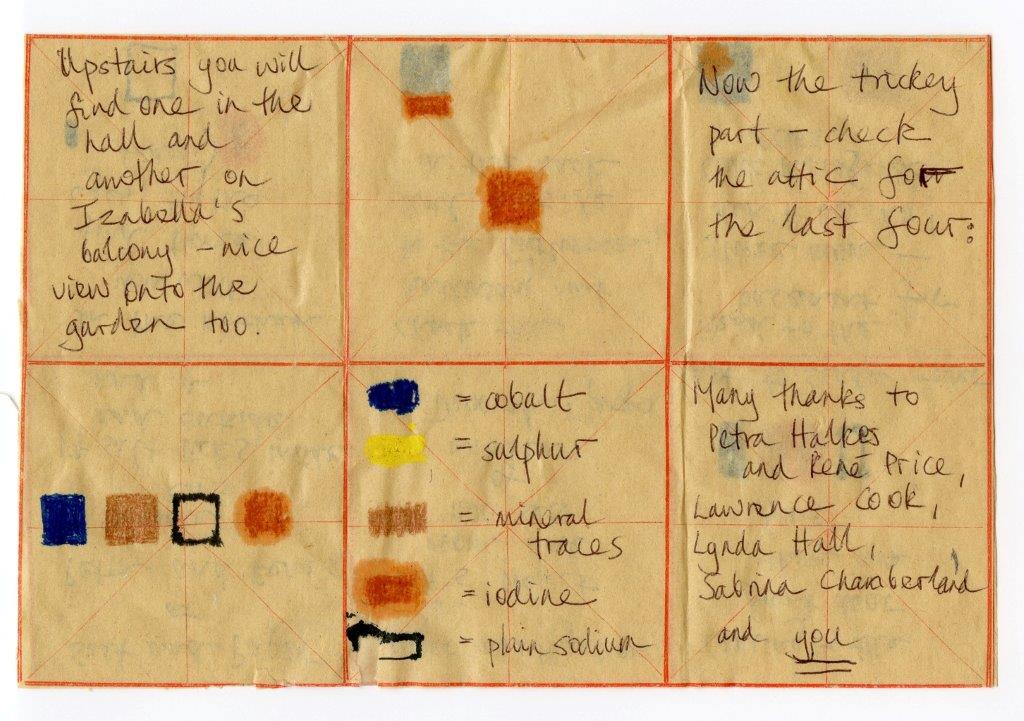 Upstairs you will
find one in the
hall and
another on
Izabella's
balcony – nice
view onto the
garden too.
Now the trickey
part – check
the attic for
the last four:
= cobalt
= sulphur
= mineral
traces
= iodine
= plain sodium
Many thanks to
Petra Halkes
and René Price,
Lawrence Cook,
Lynda Hall,
Sabrina Chamberland
and you